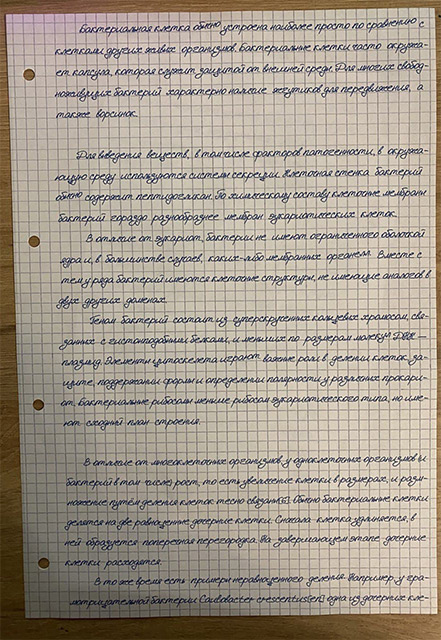 Бактериальная клетка обычно устроена наиболее просто по сравнению с
клетками других живых организмов. Бактериальные клетки часто окружа-
ет капсула, которая служит защитой от внешней среды. Для многих свобод-
ноживущих бактерий характерно наличие жгутиков для передвижения, а
также ворсинок.
Для выведения веществ, в том числе факторов патогенности, в окружа-
ющую среду используются системы секреции. Клеточная стенка бактерий
обычно содержит пептидогликан. По химическому составу клеточные мембраны
бактерий гораздо разнообразнее мембран эукариотических клеток.
В отличие от эукариот, бактерии не имеют ограниченного оболочкой
ядра и, в большинстве случаев, каких-либо мембранных органелл. Вместе с
тем у ряда бактерий имеются клеточные структуры, не имеющие аналогов в
двух других доменах.
Геном бактерий состоит из суперскрученных кольцевых хромосом, свя-
занных с гистоноподобными белками, и меньших по размерам молекул ДНК —
плазмид. Элементы цитоскелета играют важные роли в делении клеток, за-
щите, поддержании формы и определении полярности у различных прокари-
от. Бактериальные рибосомы меньше рибосом эукариотического типа, но име-
ют сходный план строения.
В отличие от многоклеточных организмов, у одноклеточных организмов и
бактерий в том числе рост, то есть увеличение клетки в размерах, и разм-
ножение путём деления клеток тесно связаны Обычно бактериальные клетки
делятся на две равноценные дочерние клетки. Сначала клетка удлиняется, в
ней образуется поперечная перегородка. На завершающем этапе дочерние
клетки расходятся.
В то же время есть примеры неравноценного деления. Например, у гра-
мотрицательной бактерии Caulobacter crescentus[en] одна из дочерних кле-